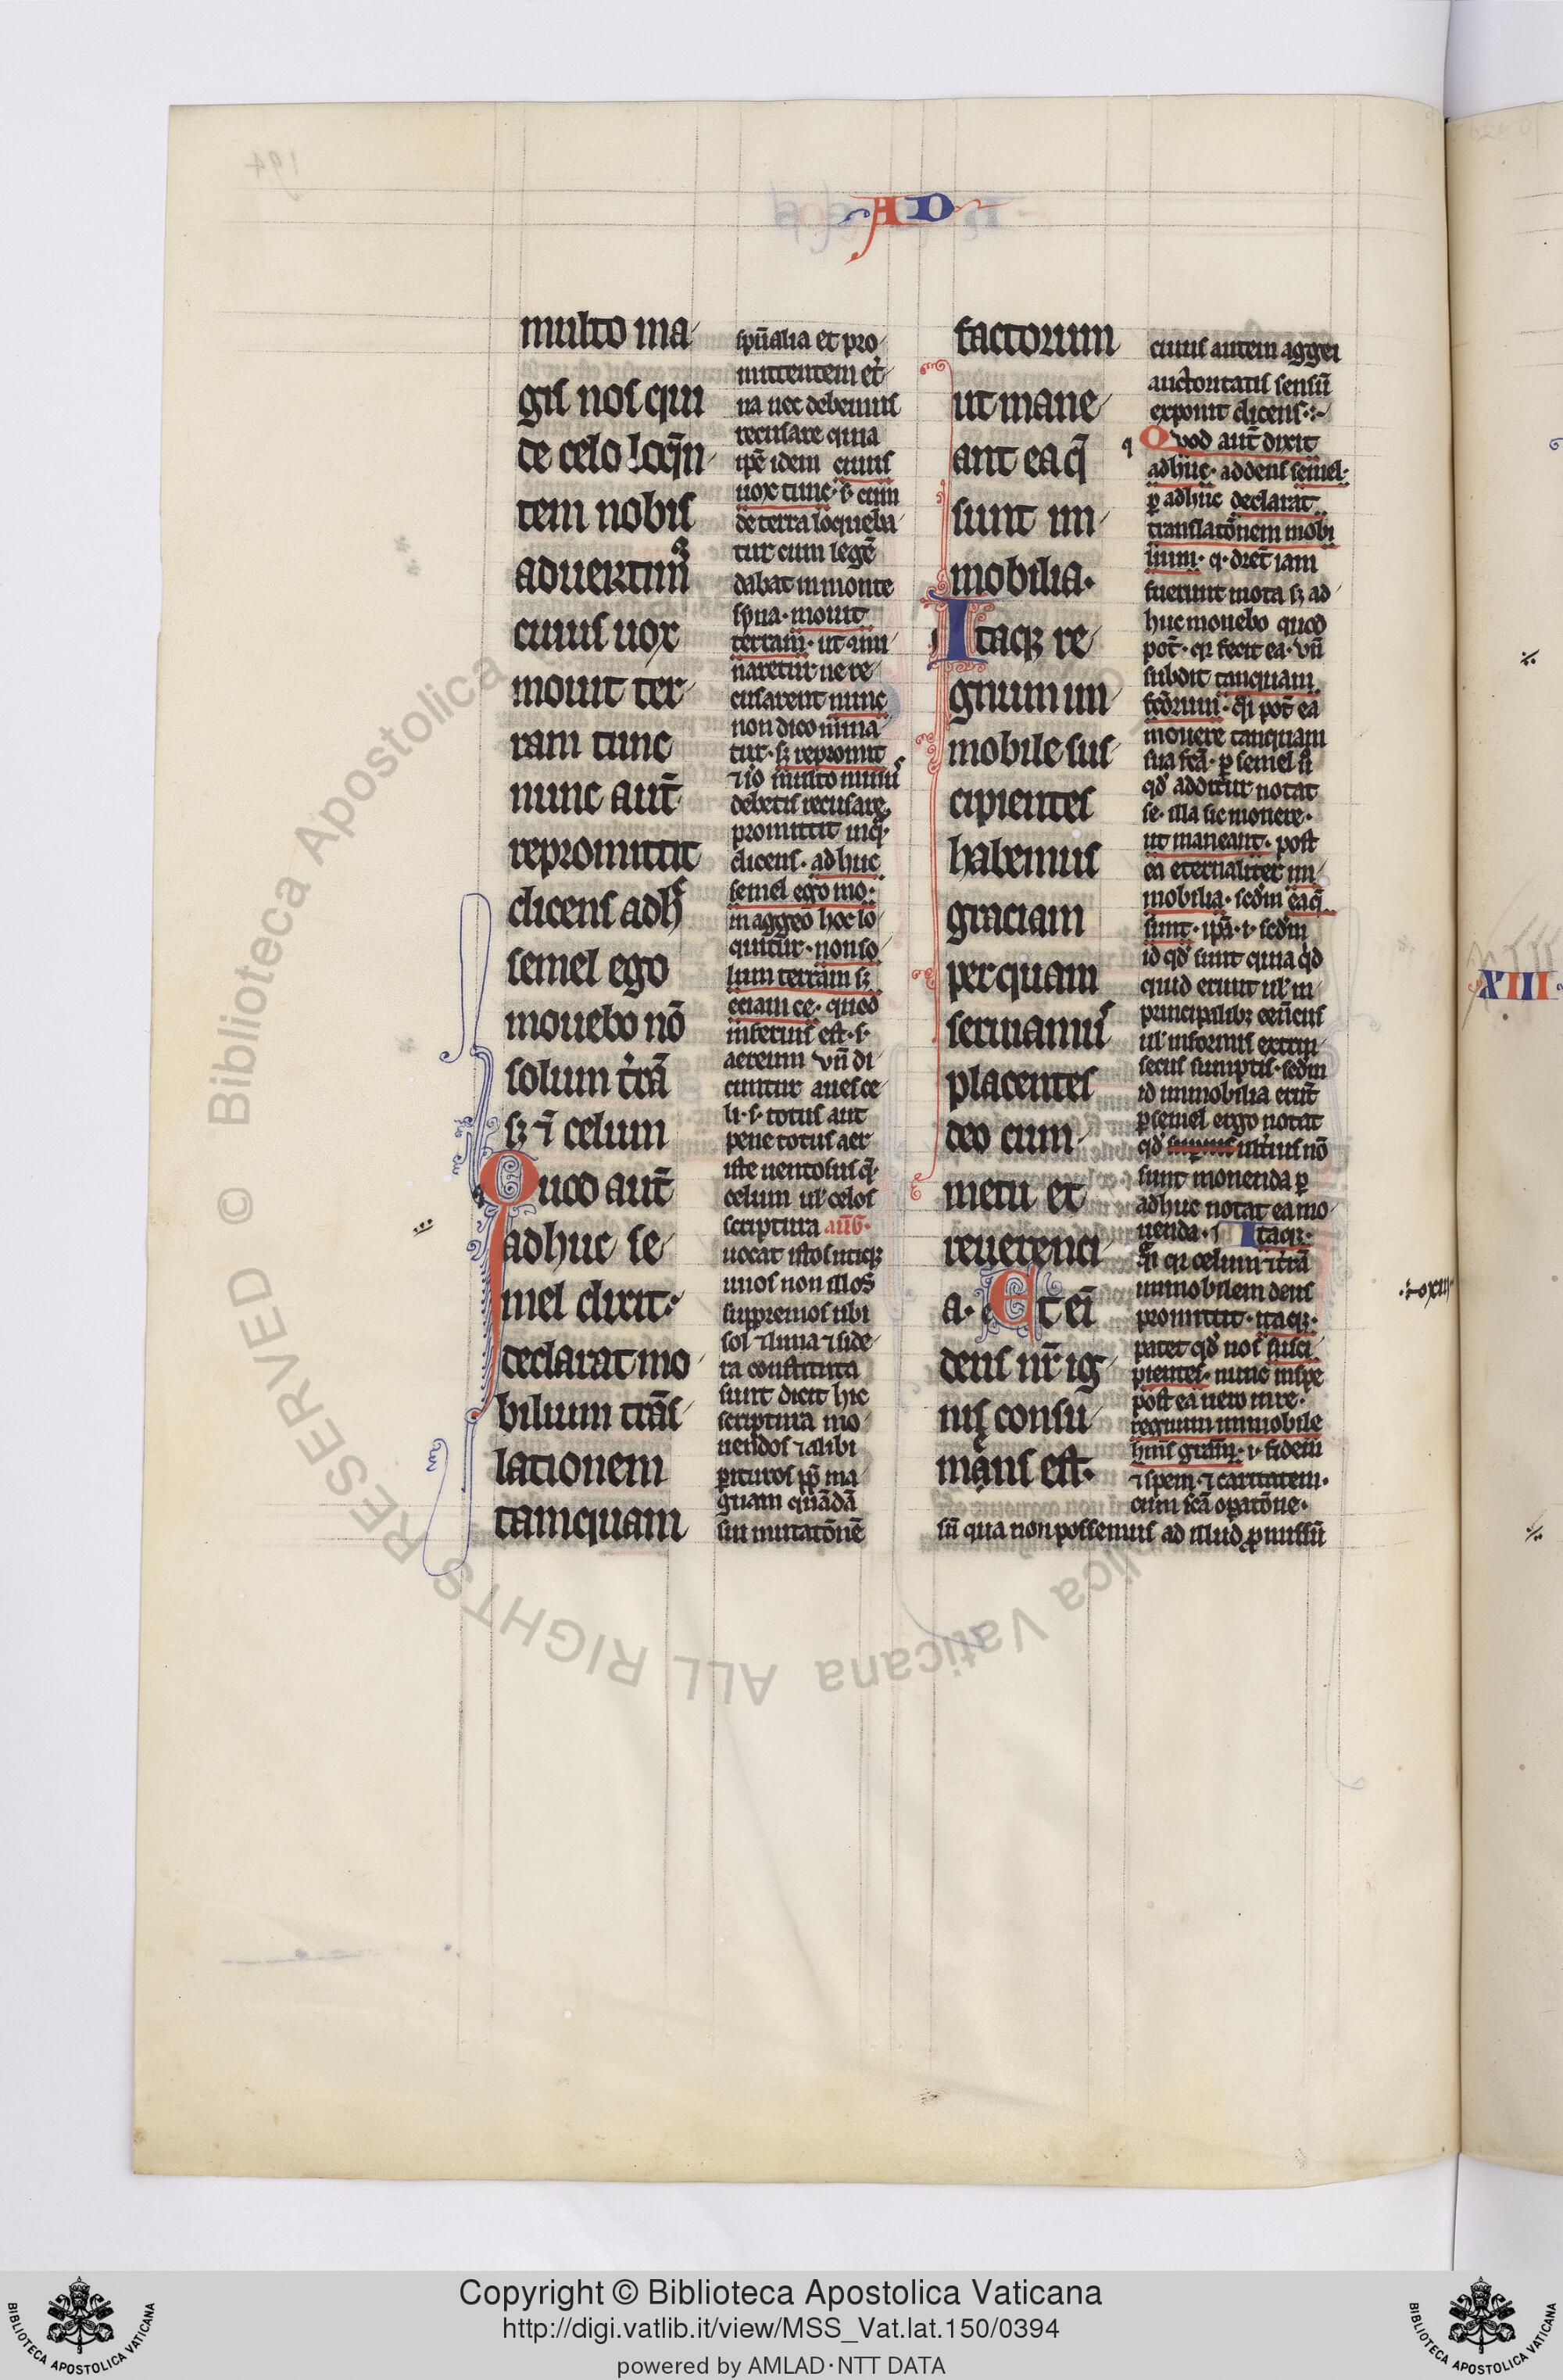 AD
multo ma
gis nos qui
de celo loq̄n
tem nobis
aduertim᷒
cuius uox
mouit ter
ram tunc
nunc aut̄
repromittit
dicens adhᶜ
semel ego
mouebo nō
solum t̓rā
sꝫ ⁊ celum
Quod aut̄
adhuc se
mel dixit:
declarat mo
bilium trās
lationem
tamquam
sp̄ualia et pro
mittentem et̓
na uoc debemus
recusare quia
ip̄e idem cuius
uox tunc· s· cum
de terra loqueba
tur cum legē
dabat in monte
syna· mouit
terram· ut
naretur ne re
cusarent nunc
non dico mīna
tur· sꝫ repromit
⁊ iō multo minᷤ
debetis recusare
promittit inq̄·
dicens· adhuc
semel ego mo·
in aggeo hoc lo
quitur· non so
lum terram sꝫ
eciam ce· quod
inferius est· s·
aereum vn̄ di
cuntur aues ce
li· s· totus aut
pene totus aer
iste uentosus q̄·
celum ul̓ celos
scriptura aug̅·
uocat istos utiqꝫ
imos non illos
suppremos ubi
sol ⁊ luna ⁊ side
ra constituta
sunt dicit hic
scriptura mo
uendos ⁊ alibi
ꝑituros ꝓp̄ ma
gnam quādā
sui mutatōnē
factorum
ut mane
ant ea q̄
sunt im
mobilia·
Itaqꝫ re
gnum im
mobile sus
cipientes
habemus
graciam
per quam
seruiamuˢ
placentes
deo cum
metu et
reuerenci
a· Et eī
deus nr̄ ig
nis consu
mans est·
cuius autem aggei
auctoritatis sensū
exponit dicens·:~
Quod aut̄ dixit
adhuc· addens semel·
ꝑ adhuc declarat
translatōnem mobi
lium· q· dret̄ iam
fuerunt mota sꝫ ad
huc mouebo quod
pot̄· qꝛ fecit ea· vn̄
subdit tanquam
fc̄orum· q̄i pot̄ ea
mouere tanquam
sua fc̄a· ꝑ semel ū
qd̓ additur notat
se· illa sic mouere·
ut maneant· post
ea eternaliter im
mobilia· scd̓m ea q̄
sunt· ip̄a· i· scd̓m
id qd̓ sunt quia qd̓
quid erunt ul̓ in
principalibꝫ
ul̓ in formis extrin
secus sumptis· scd̓m
id immobilia erūt
ꝑ semel ergo notat
qd̓ ult̓ius nō
sunt mouenda ꝑ
adhuc notat ea mo
uenda· Itaqꝫ·
q̄i qꝛ celum ⁊ t̓rā
immobilem deus
promittit· itaqꝫ·
patet qd̓ nos susci
pientes· nunc in spe
post ea uero in re·
regnum immobile
hm̄s gratiā· i· fidem
⁊ spem· ⁊ caritatem·
cum sc̄a oꝑatōne·
sn̄ qua non possemus ad illud ꝓmissū
XIII
Copyright © Biblioteca Apostolica Vaticana
http://digi.vatlib.it/view/MSS_Vat.lat.150/0394
powered by AMLAD·NTT DATA
BIBLIOTECA APOSTOLICA VATICANA
BIBLIOTECA APOSTOLICA VATICANA
© Biblioteca Apostolica Vaticana ALL RIGHTS RESERVED